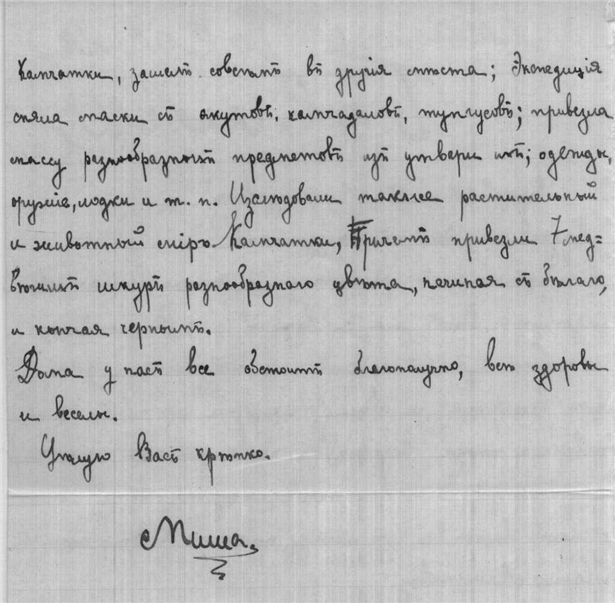 Камчатки, затѣмъ совсѣмъ въ другія мѣста; Экспедиція
сняла маски съ якутовъ, камчадаловъ, тунгусовъ; привезла
массу разнообразныхъ предметовъ изъ утвари ихъ; одежды,
оружія, лодки и т. п. Изслѣдовали также растительный
и животный міръ Камчатки, Причемъ привезли 7 мед=
вѣжихъ шкуръ разнообразнаго цвѣта, начиная съ бѣлаго,
и кончая чернымъ.
Дома у насъ все обстоитъ благополучно, всѣ здоровы
и веселы.
Цѣлую Васъ крѣпко.
Миша.